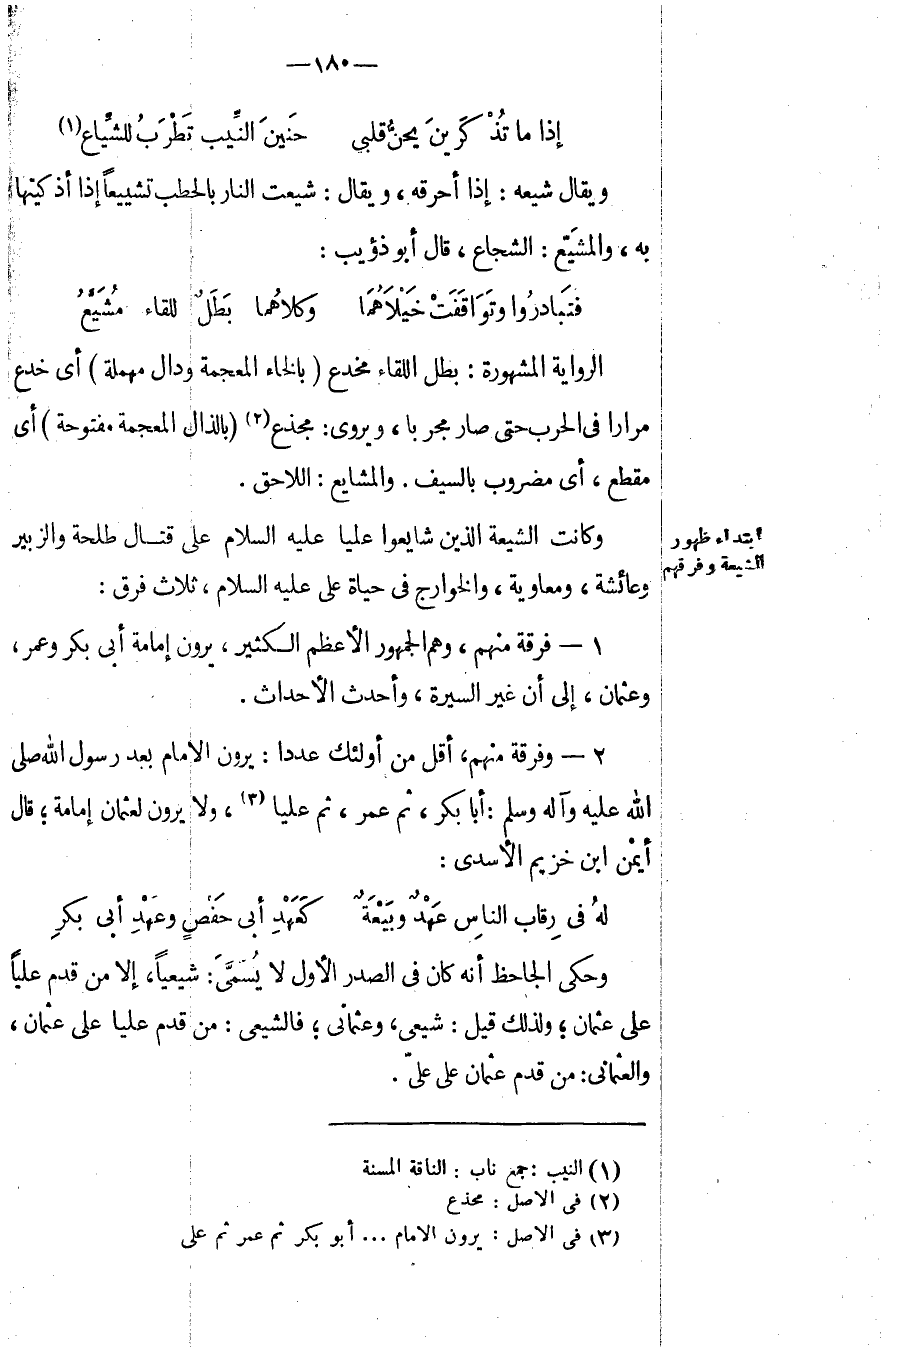 —١٨٠—
إذا ما تُذْكَرين يحنُّ قلبي     حَنينَ النِّيب تَطْرَبُ للشِّياع(١)
ويقال شيعه : إذا أحرقه ، ويقال : شيعت النار بالحطب تشييعاً إذا أذكيتها
به ، والمشَيّع : الشجاع ، قال أبو ذؤيب :
فتَبادرُوا وتَوَاقَفَتْ خَيْلاَهُمَا     وكلاهُما بَطَلٌ للقاء مُشَيَّعُ
الرواية المشهورة : بطل اللقاء مخدع ( بالخاء المعجمة ودال مهملة ) أى خدع
مرارا فى الحرب حتى صار مجربا ، ويروى : مجذع(٢) (بالذال المعجمة مفتوحة ) أى
مقطع ، أى مضروب بالسيف . والمشايع : اللاحق .
ابتداء ظهور
الشيعة وفرقهم
وكانت الشيعة الذين شايعوا عليا عليه السلام على قتال طلحة والزبير
وعائشة ، ومعاوية ، والخوارج فى حياة على عليه السلام ، ثلاث فرق :
١ — فرقة منهم ، وهم الجمهور الأعظم الكثير ، يرون إمامة أبى بكر وعمر ،
وعثمان ، إلى أن غير السيرة ، وأحدث الأحداث .
٢ — وفرقة منهم، أقل من أولئك عددا : يرون الامام بعد رسول الله صلى
الله عليه وآله وسلم : أبا بكر ، ثم عمر ، ثم عليا (٣) ، ولا يرون لعثمان إمامة ؛ قال
أيمْن ابن خزيم الأسدى :
لهُ فى رِقاب الناسِ عَهْدٌ وبَيْعَةٌ     كَعَهْدِ أبى حَفَصٍ وعَهْدِ أبى بكرِ
وحكى الجاحظ أنه كان فى الصدر الأول لا يُسَمَّىَ : شيعياً، إلا من قدم علياً
على عثمان ؛ ولذلك قيل : شيعى، وعثمانى ؛ فالشيعى : من قدم عليا على عثمان ،
والعثمانى : من قدم عثمان على علىّ .
(١) النيب : جمع ناب : الناقة المسنة
(٢) فى الاصل : مخذع
(٣) فى الاصل : يرون الامام ... أبو بكر ثم عمر ثم على